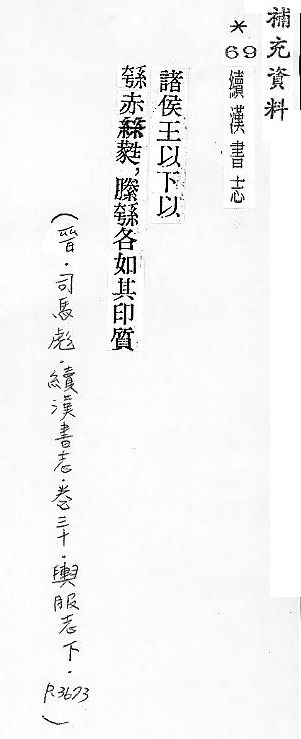 補充資料
*69 續漢書志
諸侯王以下以
綔赤絲蕤，縢綔各如其印質
（晉．司馬彪．續漢書志．卷三十．輿服志下．P.3673）